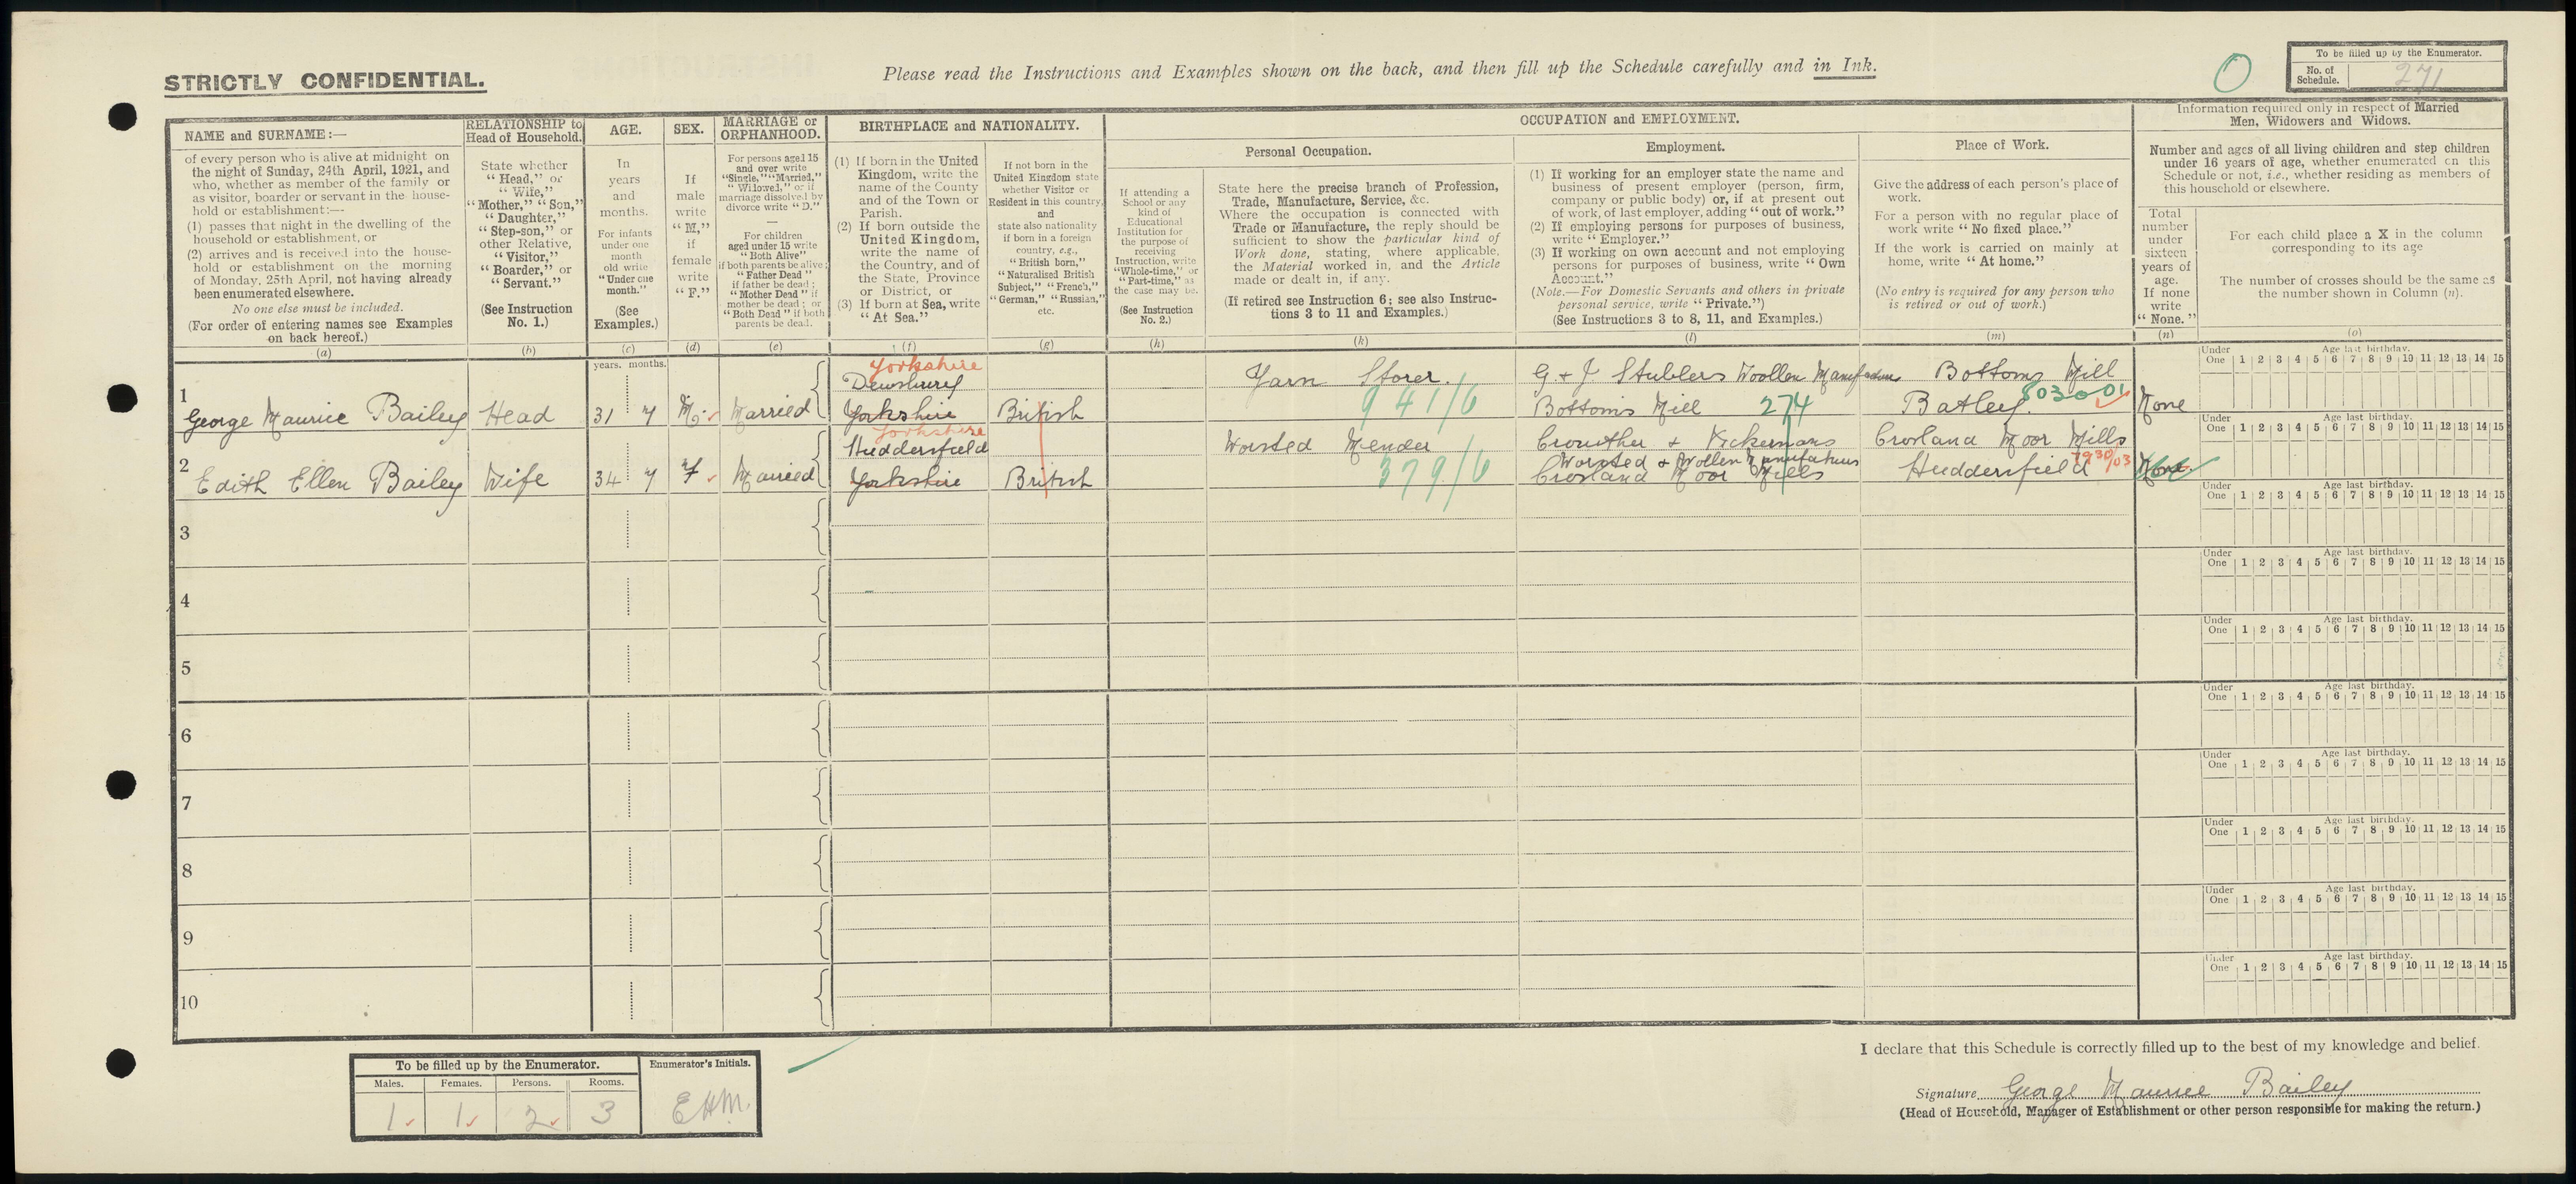 STRICTLY CONFIDENTIAL.
Please read the Instructions and Examples shown on the back, and then fill up the Schedule carefully and in Ink.
O
To be filled up by the Enumerator.
No. of Schedule. 271
NAME and SURNAME:—
of every person who is alive at midnight on
the night of Sunday, 24th April, 1921, and
who, whether as member of the family or
as visitor, boarder or servant in the house-
hold or establishment:—
(1) passes that night in the dwelling of the
household or establishment, or
(2) arrives and is received into the house-
hold or establishment on the morning
of Monday, 25th April, not having already
been enumerated elsewhere.
No one else must be included.
(For order of entering names see Examples
on back hereof.)
(a)
RELATIONSHIP to
Head of Household.
State whether
"Head," or
"Wife,"
"Mother," "Son,"
"Daughter,"
"Step-son," or
other Relative,
"Visitor,"
"Boarder," or
"Servant."
(See Instruction
No. 1.)
(b)
AGE.
In
years
and
months.
For infants
under one
month
old write
"Under one
month."
(See
Examples.)
(c)
SEX.
If
male
write
"M,"
if
female
write
"F."
(d)
MARRIAGE or
ORPHANHOOD.
For persons aged 15
and over write
"Single," "Married,"
"Widowed," or if
marriage dissolved by
divorce write "D."
—
For children
aged under 15 write
"Both Alive"
if both parents be alive;
"Father Dead"
if father be dead;
"Mother Dead" if
mother be dead; or
"Both Dead" if both
parents be dead.
(e)
BIRTHPLACE and NATIONALITY.
(1) If born in the United
Kingdom, write the
name of the County
and of the Town or
Parish.
(2) If born outside the
United Kingdom,
write the name of
the Country, and of
the State, Province
or District, or
(3) If born at Sea, write
"At Sea."
(f)
If not born in the
United Kingdom state
whether Visitor or
Resident in this country,
and
state also nationality
if born in a foreign
country, e.g.,
"British born,"
"Naturalised British
Subject," "French,"
"German," "Russian,"
etc.
(g)
OCCUPATION and EMPLOYMENT.
Personal Occupation.
If attending a
School or any
kind of
Educational
Institution for
the purpose of
receiving
Instruction, write
"Whole-time," or
"Part-time," as
the case may be.
(See Instruction
No. 2.)
(h)
State here the precise branch of Profession,
Trade, Manufacture, Service, &c.
Where the occupation is connected with
Trade or Manufacture, the reply should be
sufficient to show the particular kind of
Work done, stating, where applicable,
the Material worked in, and the Article
made or dealt in, if any.
(If retired see Instruction 6; see also Instruc-
tions 3 to 11 and Examples.)
(k)
Employment.
(1) If working for an employer state the name and
business of present employer (person, firm,
company or public body) or, if at present out
of work, of last employer, adding "out of work."
(2) If employing persons for purposes of business,
write "Employer."
(3) If working on own account and not employing
persons for purposes of business, write "Own
Account."
(Note.—For Domestic Servants and others in private
personal service, write "Private.")
(See Instructions 3 to 8, 11, and Examples.)
(l)
Place of Work.
Give the address of each person's place of
work.
For a person with no regular place of
work write "No fixed place."
If the work is carried on mainly at
home, write "At home."
(No entry is required for any person who
is retired or out of work.)
(m)
Information required only in respect of Married
Men, Widowers and Widows.
Number and ages of all living children and step children
under 16 years of age, whether enumerated on this
Schedule or not, i.e., whether residing as members of
this household or elsewhere.
Total
number
under
sixteen
years of
age.
If none
write
"None."
(n)
For each child place a X in the column
corresponding to its age
The number of crosses should be the same as
the number shown in Column (n).
(o)
years. months.
Under One Age last birthday. 1 2 3 4 5 6 7 8 9 10 11 12 13 14 15
Yorkshire
1 George Maurice Bailey Head 31 7 M. Married Dewsbury Yorkshire British
Yarn Storer. 941/6
G & J Stubleys Woollen Manufacturers
Bottoms Mill 274
Bottoms Mill
Batley. 8030 01
None
Under One Age last birthday. 1 2 3 4 5 6 7 8 9 10 11 12 13 14 15
Yorkshire
2 Edith Ellen Bailey Wife 34 7 F Married Huddersfield Yorkshire British
Worsted Mender 379/6
Crowther & Vickermans
Worsted & Wollen Manufacturers
Crosland Moor Mills
Crosland Moor Mills
Huddersfield 7930/03
None
Under One Age last birthday. 1 2 3 4 5 6 7 8 9 10 11 12 13 14 15
3
Under One Age last birthday. 1 2 3 4 5 6 7 8 9 10 11 12 13 14 15
4
Under One Age last birthday. 1 2 3 4 5 6 7 8 9 10 11 12 13 14 15
5
Under One Age last birthday. 1 2 3 4 5 6 7 8 9 10 11 12 13 14 15
6
Under One Age last birthday. 1 2 3 4 5 6 7 8 9 10 11 12 13 14 15
7
Under One Age last birthday. 1 2 3 4 5 6 7 8 9 10 11 12 13 14 15
8
Under One Age last birthday. 1 2 3 4 5 6 7 8 9 10 11 12 13 14 15
9
Under One Age last birthday. 1 2 3 4 5 6 7 8 9 10 11 12 13 14 15
10
To be filled up by the Enumerator.
Males. Females. Persons. Rooms.
1 1 2 3
Enumerator's Initials.
EHM.
I declare that this Schedule is correctly filled up to the best of my knowledge and belief.
Signature George Maurice Bailey
(Head of Household, Manager of Establishment or other person responsible for making the return.)